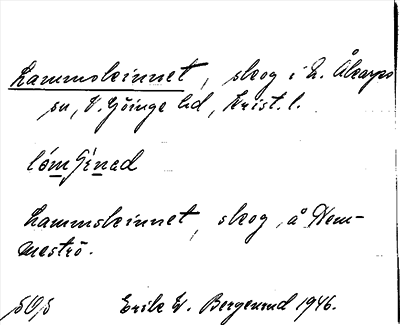 Lammskinnet, skog i N. Åkarps
sn, V. Göinge hd, Krist. l.
Lammskinnet, skog, å Hem-
meströ.
Erik W. Bergenrud 1946.